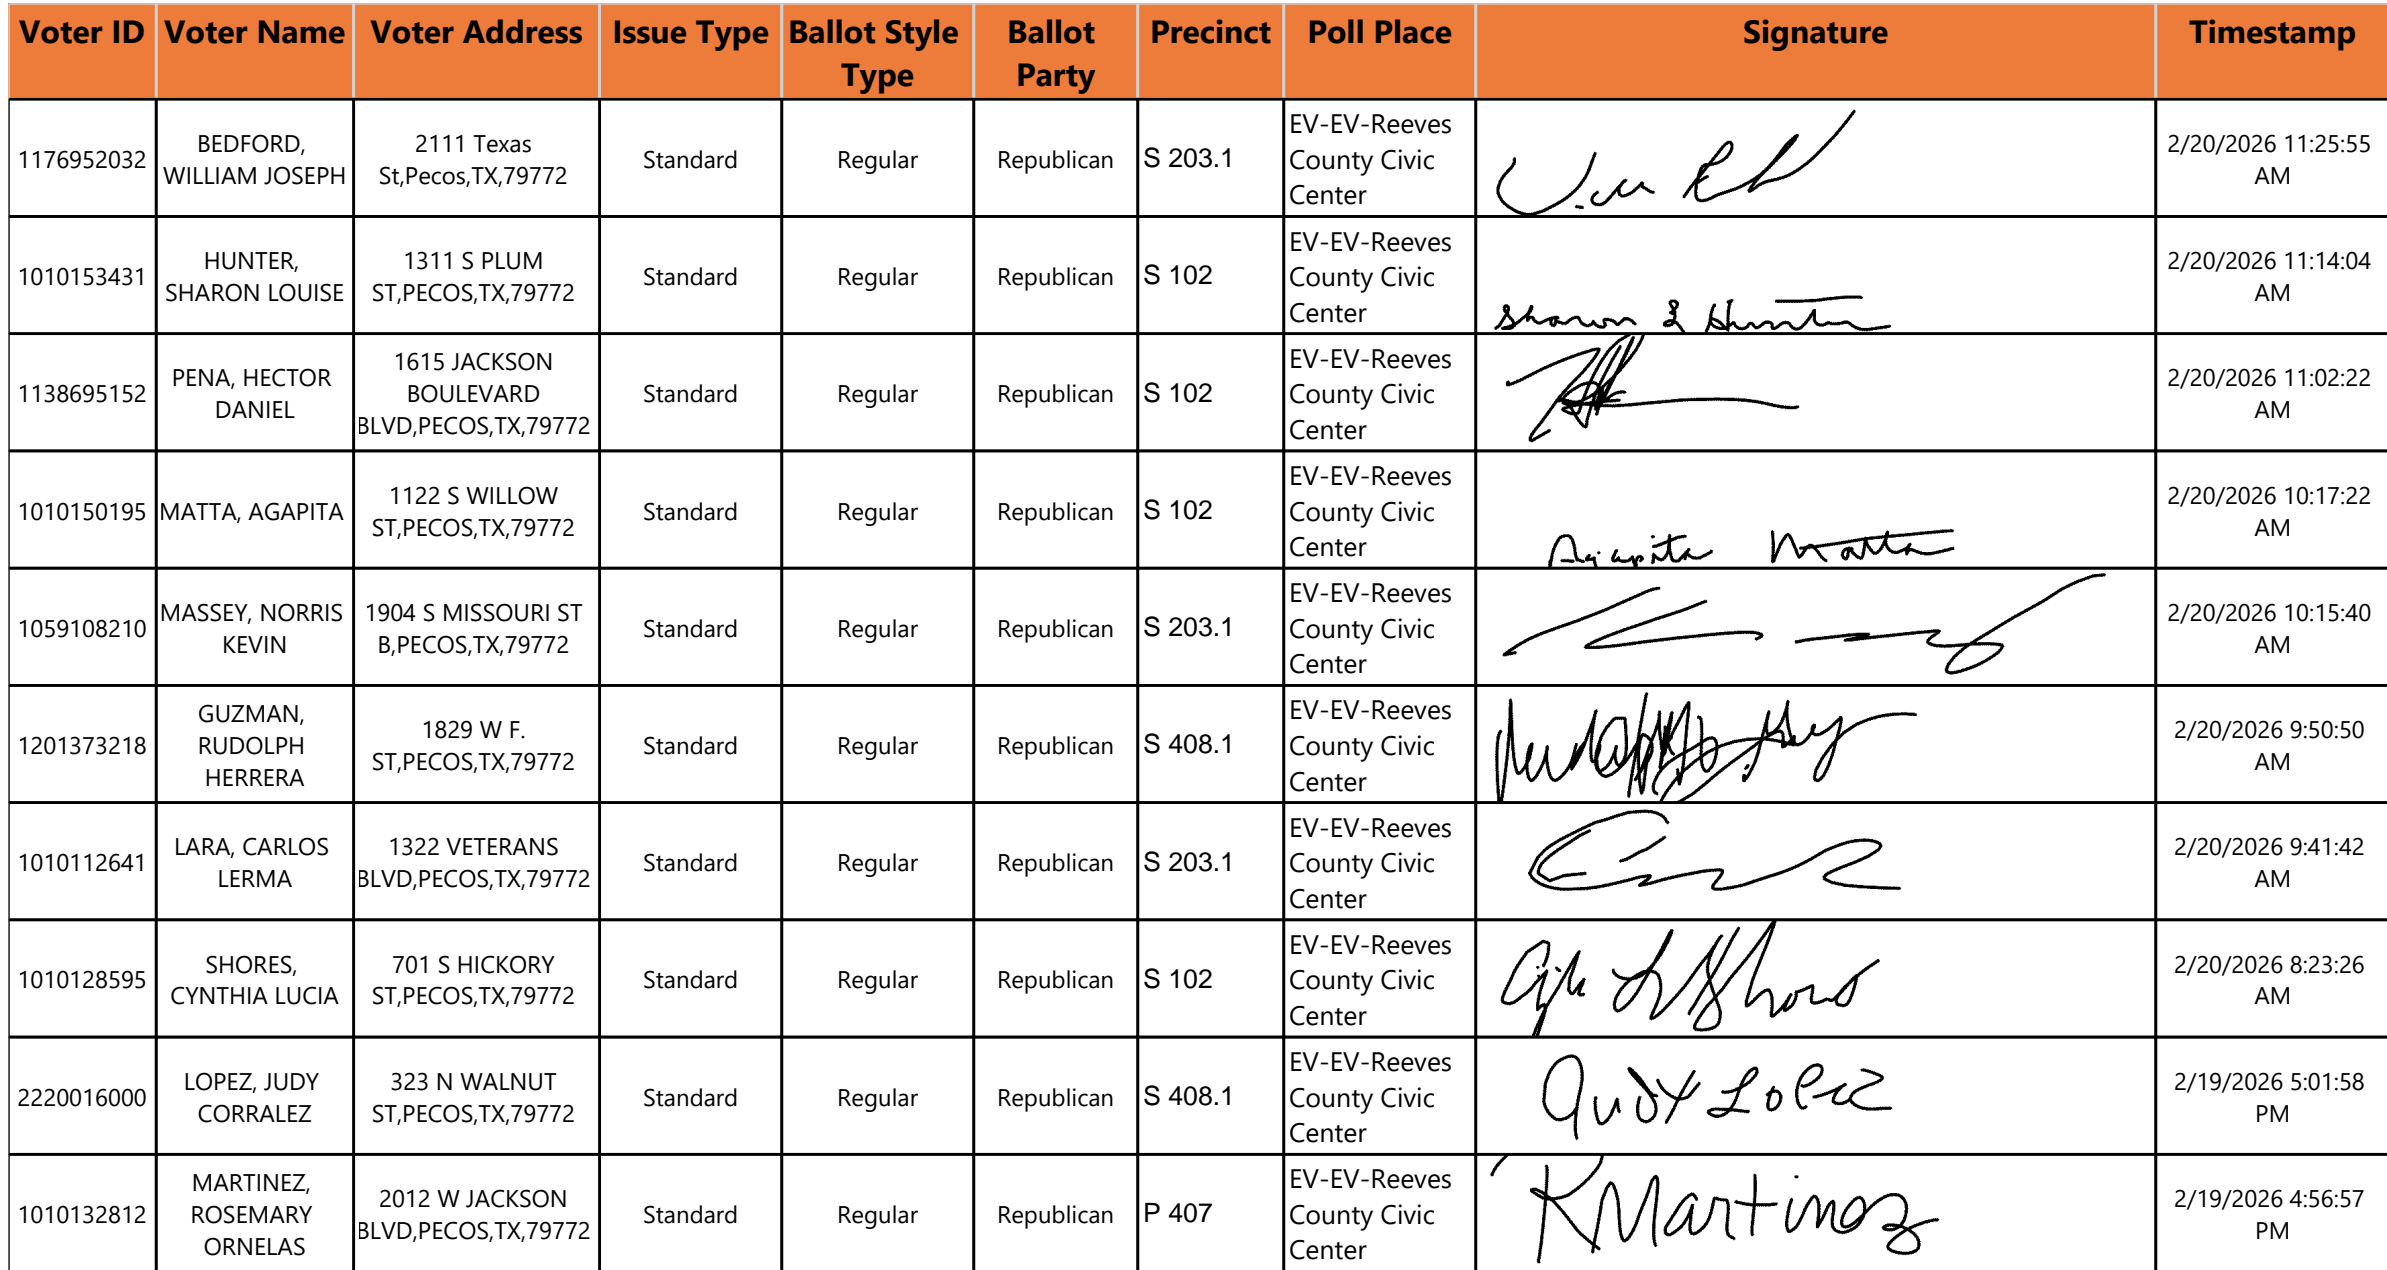 Voter ID Voter Name Voter Address Issue Type Ballot Style Type Ballot Party Precinct Poll Place Signature Timestamp
1176952032 BEDFORD, WILLIAM JOSEPH 2111 Texas St,Pecos,TX,79772 Standard Regular Republican S 203.1 EV-EV-Reeves County Civic Center 2/20/2026 11:25:55 AM
1010153431 HUNTER, SHARON LOUISE 1311 S PLUM ST,PECOS,TX,79772 Standard Regular Republican S 102 EV-EV-Reeves County Civic Center Sharon L Hunter 2/20/2026 11:14:04 AM
1138695152 PENA, HECTOR DANIEL 1615 JACKSON BOULEVARD BLVD,PECOS,TX,79772 Standard Regular Republican S 102 EV-EV-Reeves County Civic Center 2/20/2026 11:02:22 AM
1010150195 MATTA, AGAPITA 1122 S WILLOW ST,PECOS,TX,79772 Standard Regular Republican S 102 EV-EV-Reeves County Civic Center Agapita Matta 2/20/2026 10:17:22 AM
1059108210 MASSEY, NORRIS KEVIN 1904 S MISSOURI ST B,PECOS,TX,79772 Standard Regular Republican S 203.1 EV-EV-Reeves County Civic Center 2/20/2026 10:15:40 AM
1201373218 GUZMAN, RUDOLPH HERRERA 1829 W F. ST,PECOS,TX,79772 Standard Regular Republican S 408.1 EV-EV-Reeves County Civic Center 2/20/2026 9:50:50 AM
1010112641 LARA, CARLOS LERMA 1322 VETERANS BLVD,PECOS,TX,79772 Standard Regular Republican S 203.1 EV-EV-Reeves County Civic Center 2/20/2026 9:41:42 AM
1010128595 SHORES, CYNTHIA LUCIA 701 S HICKORY ST,PECOS,TX,79772 Standard Regular Republican S 102 EV-EV-Reeves County Civic Center 2/20/2026 8:23:26 AM
2220016000 LOPEZ, JUDY CORRALEZ 323 N WALNUT ST,PECOS,TX,79772 Standard Regular Republican S 408.1 EV-EV-Reeves County Civic Center Judy Lopez 2/19/2026 5:01:58 PM
1010132812 MARTINEZ, ROSEMARY ORNELAS 2012 W JACKSON BLVD,PECOS,TX,79772 Standard Regular Republican P 407 EV-EV-Reeves County Civic Center R Martinez 2/19/2026 4:56:57 PM